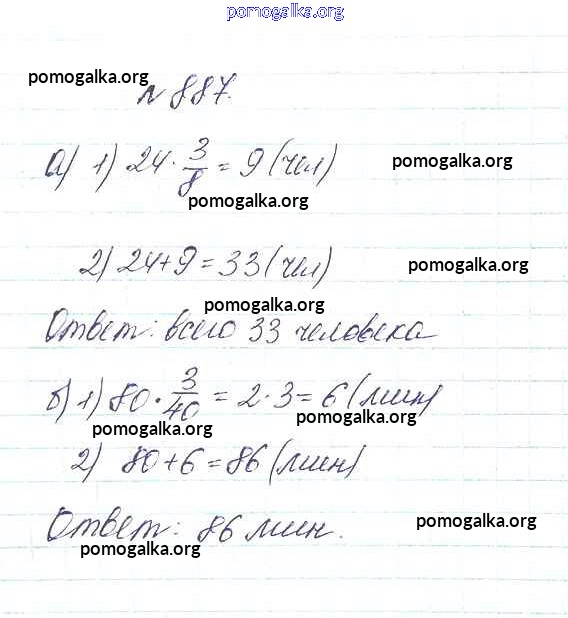 pomogalka.org
pomogalka.org
№ 887.
а) 1) 24 · 3/8 = 9 (чел)
pomogalka.org
pomogalka.org
2) 24+9 = 33 (чел)
pomogalka.org
pomogalka.org
Ответ: всего 33 человека
б) 1) 80 · 3/40 = 2 · 3 = 6 (мин)
pomogalka.org
pomogalka.org
2) 80+6 = 86 (мин)
Ответ: 86 мин.
pomogalka.org
pomogalka.org